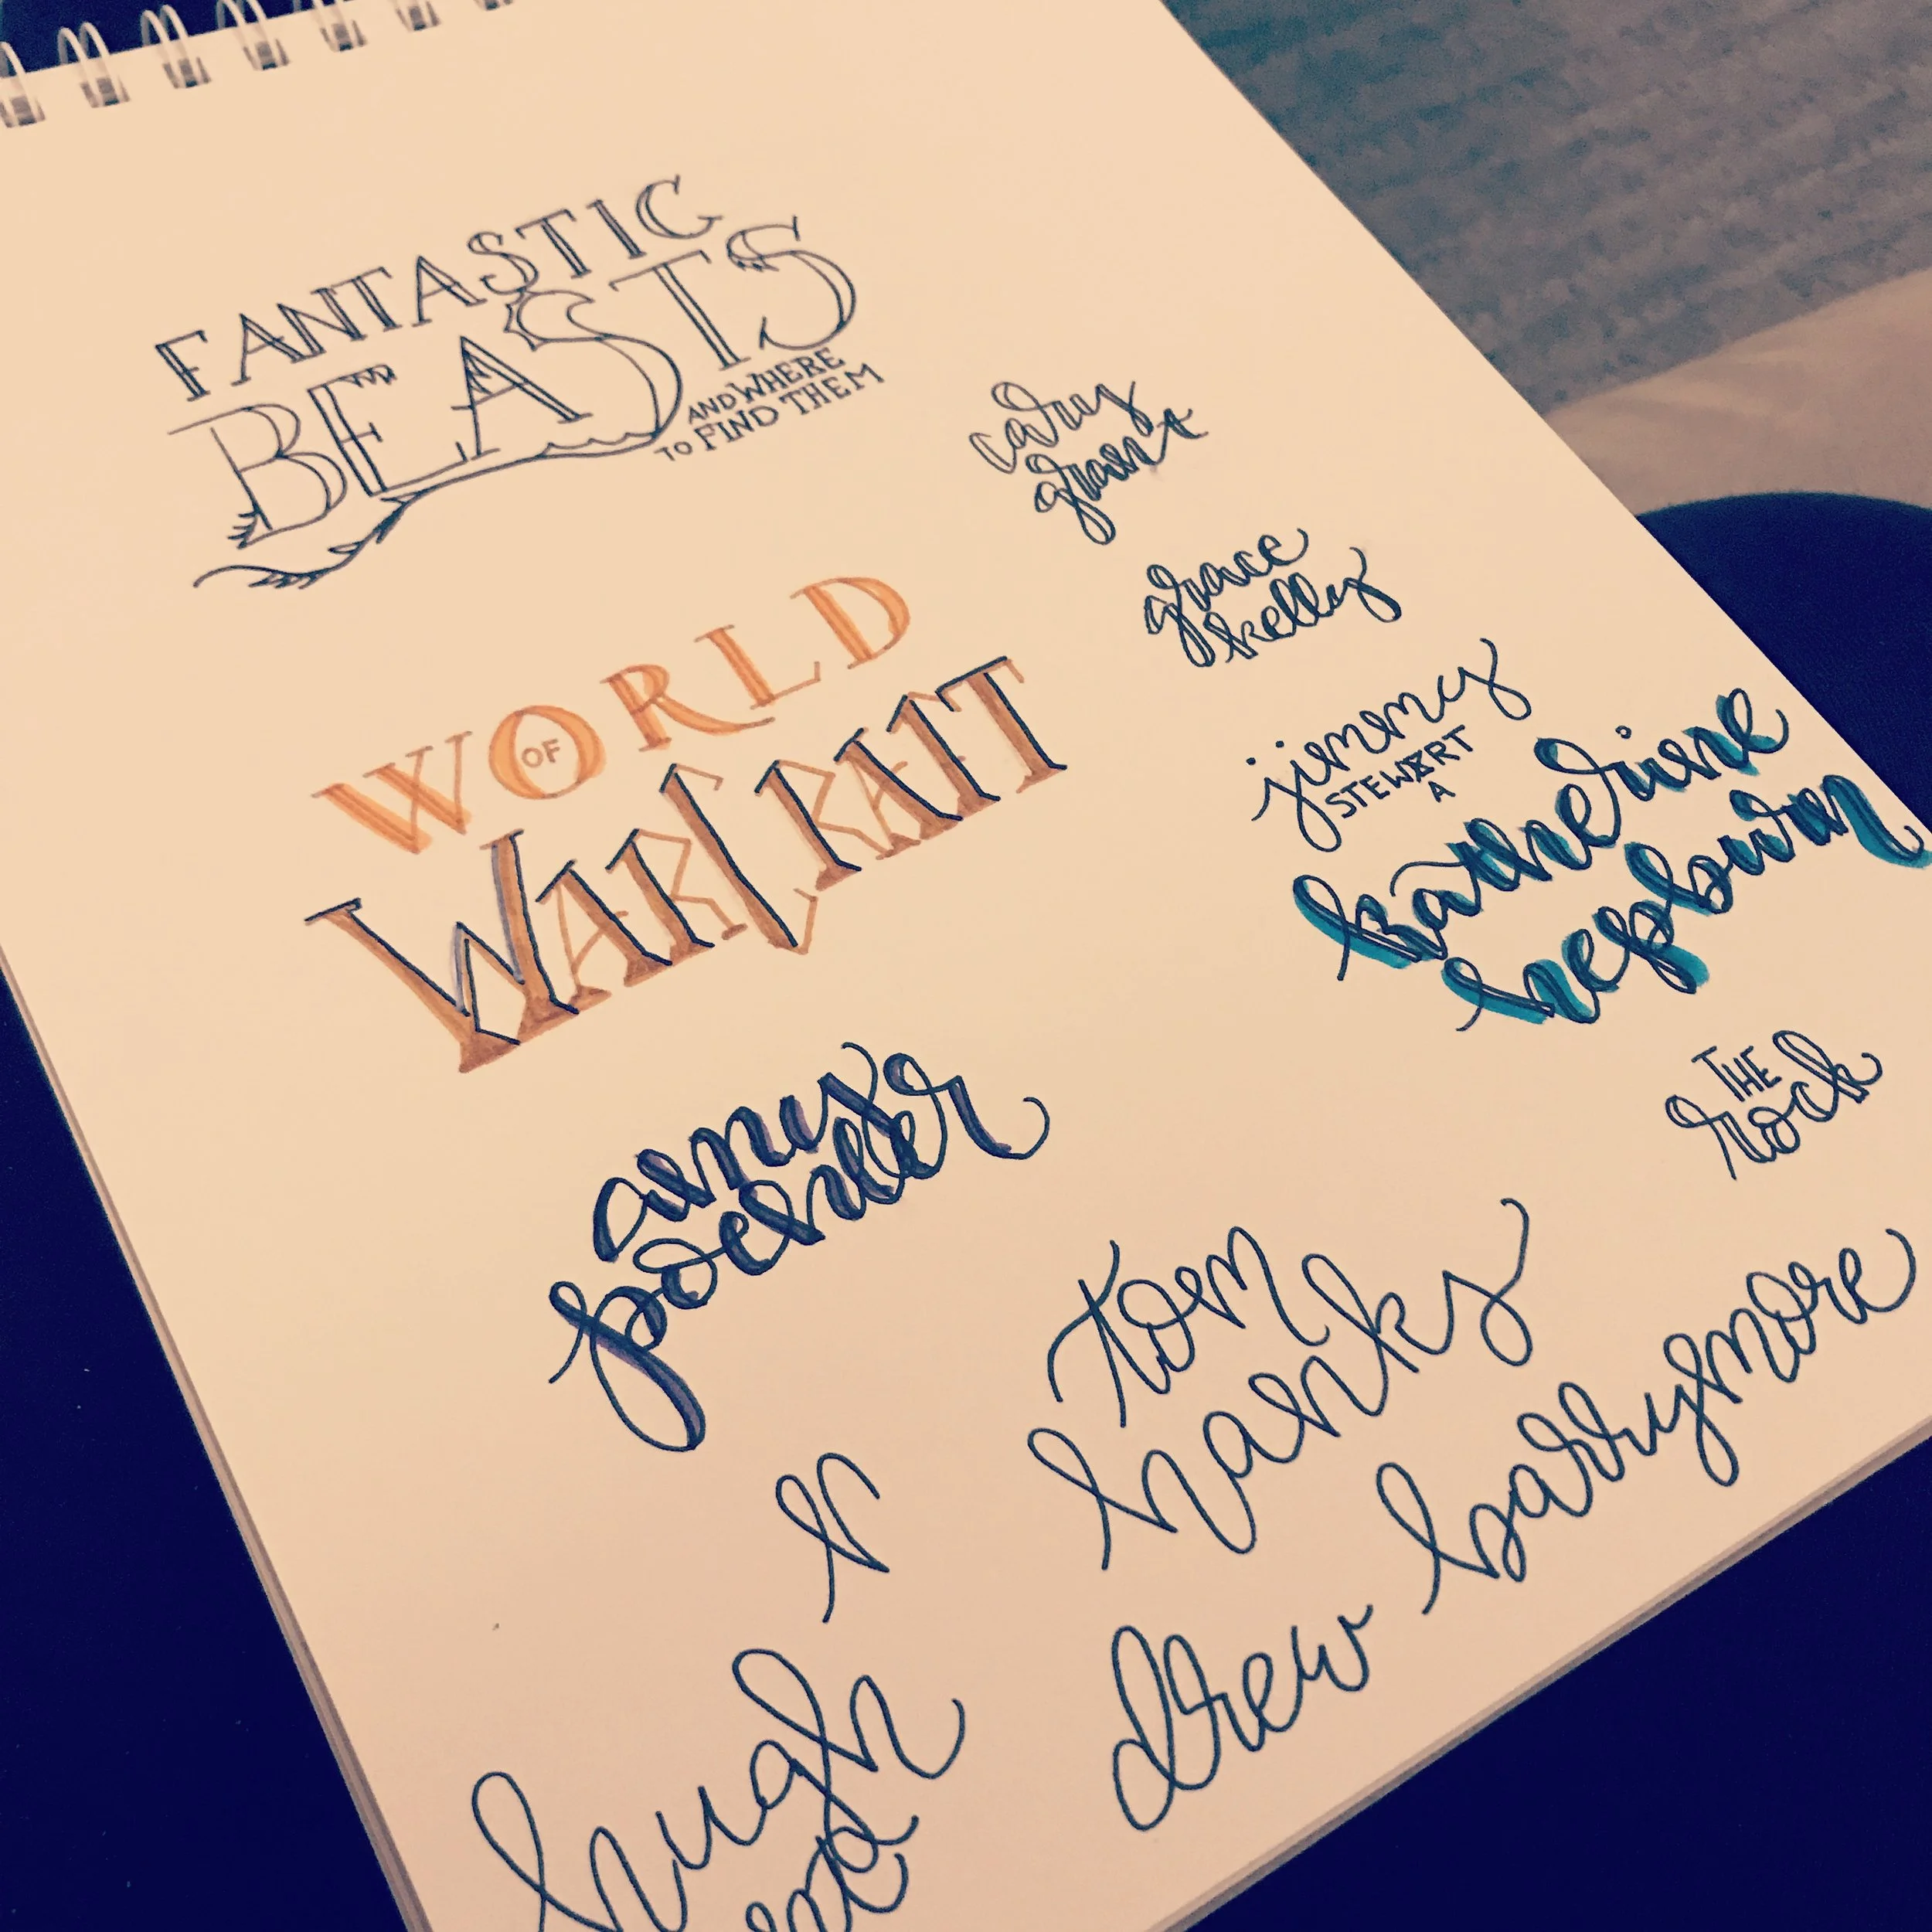 FANTASTIC
BEASTS
AND WHERE
TO FIND THEM
cary
grant
grace
kelly
WORLD
OF
WARCRAFT
jimmy
STEWERT
A
katherine
hepburn
THE
rock
amy
poehler
tom
hanks
drew barrymore
h
hugh